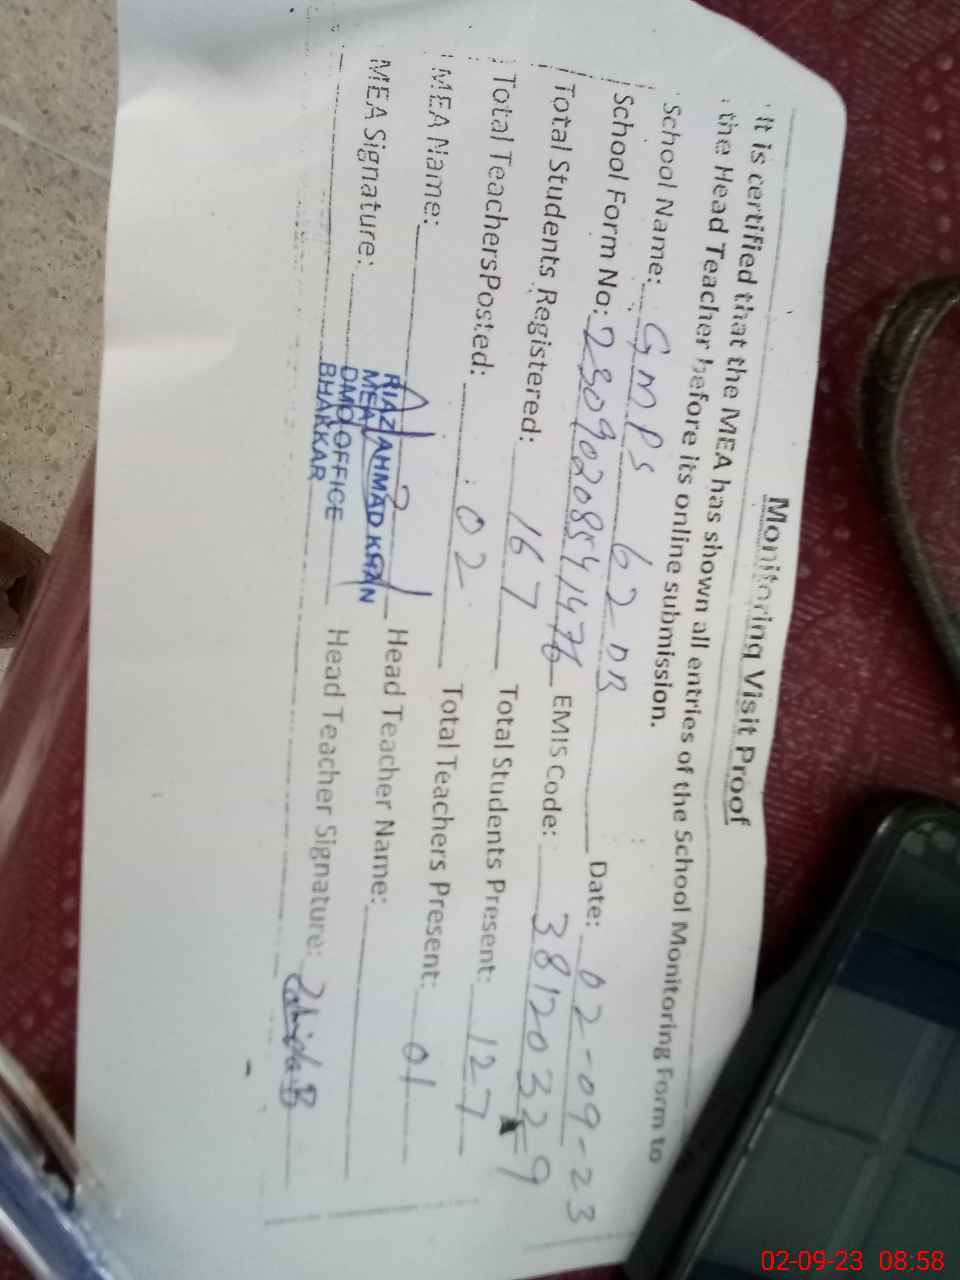 Monitoring Visit Proof
It is certified that the MEA has shown all entries of the School Monitoring Form to
the Head Teacher before its online submission.
School Name: GMPS 62 DB Date: 02-09-23
School Form No: EMIS Code:
Total Students Registered: 167 Total Students Present: 127
Total TeachersPosted: 02 Total Teachers Present: 01
MEA Name: Head Teacher Name:
MEA Signature: Head Teacher Signature:
RIAZ AHMAD KHAN
MEA
DMO OFFICE
BHAKKAR
02-09-23 08:58